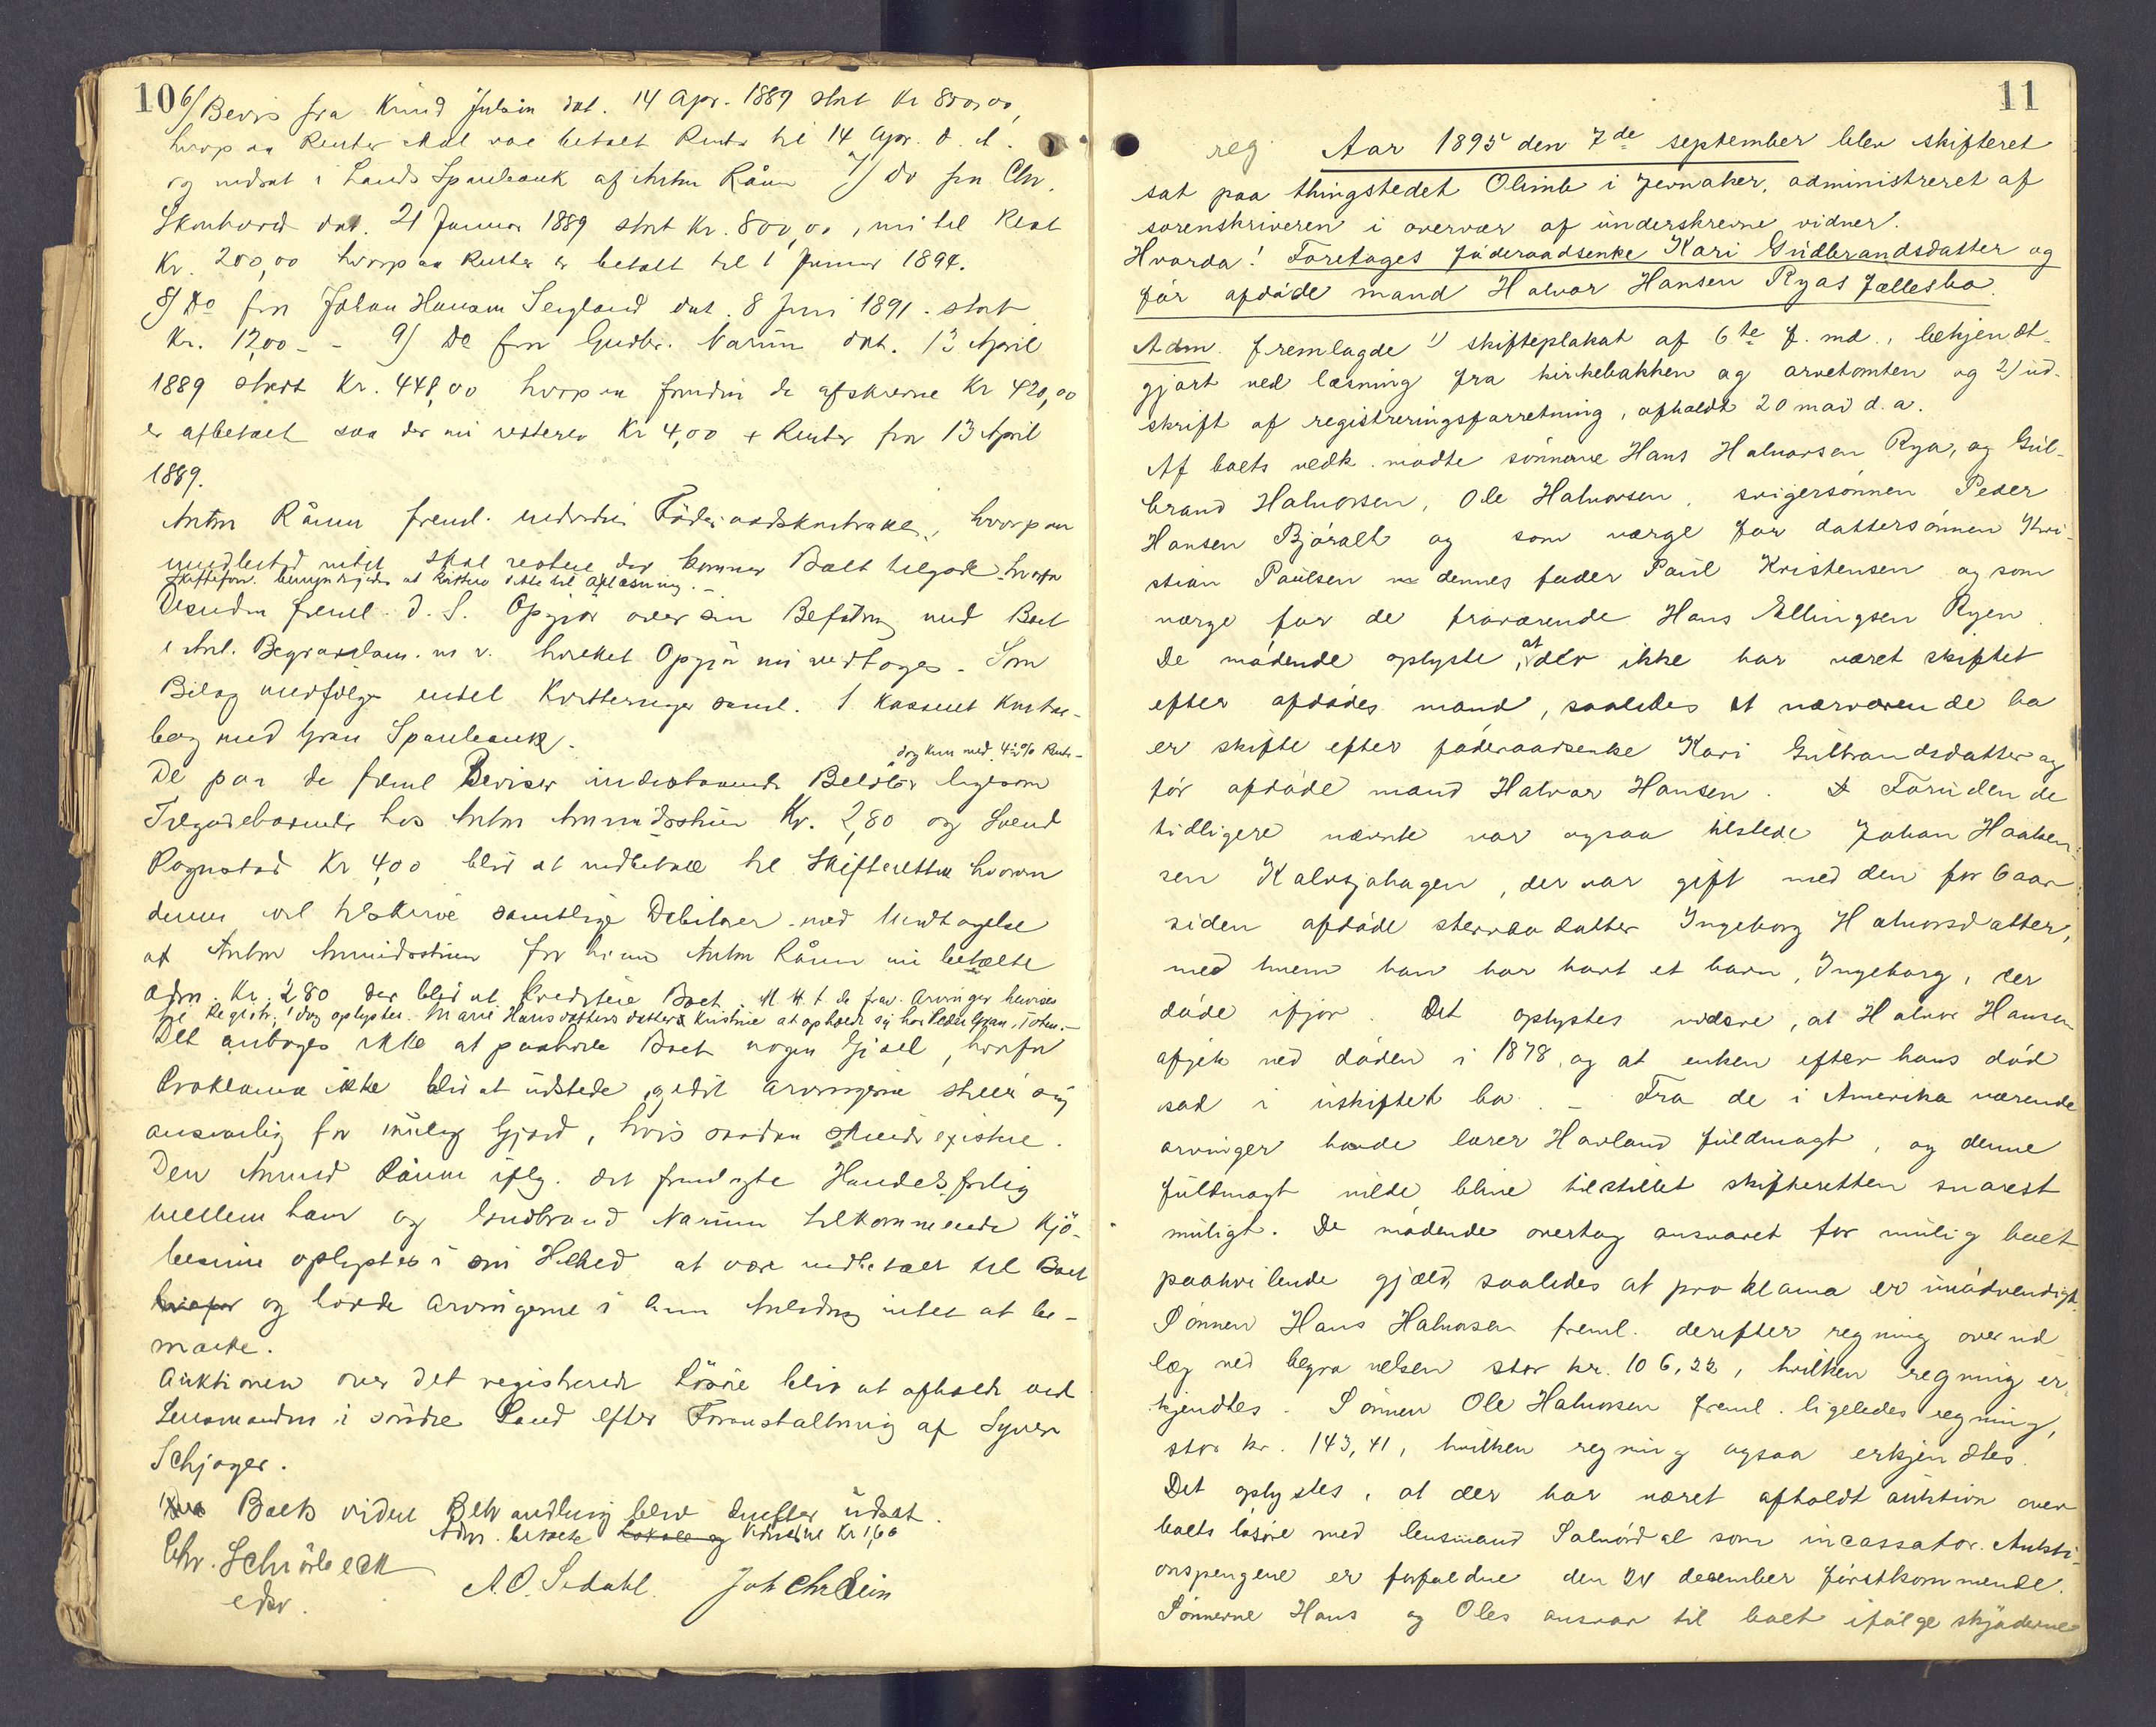 10
6/ Bevis fra Knud Julsen dat. 14 Apr. 1889 stort Kr 800,00,
hvorpaa Renter skal være betalt Renter til 14 Apr. d. A.
og indsat i Lands Sparebank af Anton Råum 7/ Do fra Chr.
dat. 21 Januar 1889 stort Kr. 800,00, nu til Rest
Kr. 200,00 hvorpaa Renter er betalt til 1 Januar 1894.
8/ Do fra Johan Hansen dat. 8 Juni 1891. stort
Kr. 12,00 - - 9/ Do fra Gudbr. Narum dat. 13 April
1889 stort Kr. 448,00 hvorpaa foruden de afskrevne Kr 420,00
er afbetalt saa der nu resterer Kr 4,00 + Renter fra 13 April
1889.
Anton Råum freml. endvidere Föderaadskontrakt, hvorpaa
imidlertid intet skal restere der kommer Boet tilgode hvorfor
Skifteforv. at kvittere dette til Aflæsning. -
Desuden freml. d. S. Opgjör over sin Befatning med Boet
i Anl. Begravelsen m. v. hvilket Opgjör nu vedtoges. Som
Bilag medfölger endel Kvitteringer saml. 1 kasseret Kontra-
bog med Gran Sparebank.
dog kun med 4½% Rente -
De paa de freml Beviser indestaaende Belöb ligesom
Tilgodehavende hos Anton Amundsstuen Kr. 2,80 og Svend
Rognstad Kr 4,00 blir at indbetale til Skifteretten hvorom
denne vil tilskrive samtlige Debitorer med Undtagelse
af Anton Amundsstuen for hvem Anton Råum nu betalte
Adm. Kr. 2,80 der blir at kreditere Boet. M. H. t. de frav. Arvinger henvises
til Registr.! dog oplystes Marie Hansdatters datter Kristine at opholde sig hos Peder Gran, Toten. -
Det antoges ikke at paahvile Boet nogen Gjæld, hvorfor
Proklama ikke blir at udstede, idet Arvingerne stiller sig
ansvarlig for mulig Gjæld, hvis saadan skulde existere.
Den Amund Råum iflg. det fremlagte Handelsforlig
mellem ham og Gudbrand Narum tilkommende Kjö-
besum oplystes i sin Helhed at være indbetalt til Boet
og havde Arvingerne i den Anledning intet at be-
mærke.
Auktionen over det registrerede Lösöre blir at afholde ved
Lensmanden i söndre Land efter Foranstaltning af Syver
Schjager.
Boets videre Behandling blev derefter udsat.
Adm. betalte Lokale og Vidnerne Kr 1,60
Chr. Schiörbeck
edsv.
A. O. Sedahl. Joh Chr Lein
11
reg. Aar 1895 den 7de september blev skifteret
sat paa thingstedet Olimb i Jevnaker, administreret af
sorenskriveren i overvær af underskrevne vidner.
Hvorda! Foretoges föderaadsenke Kari Gudbrandsdatter og
før afdøde mand Halvor Hansen Ryas fællesbo.
Adm. fremlagde 1) skifteplakat af 6te f. md., bekjendt-
gjort ved læsning fra kirkebakken og arvetomten og 2) ud-
skrift af registreringsforretning, afholdt 20 mai d. a.
Af boets vedk. mødte sønnerne Hans Halvorsen Rya, og Gul-
brand Halvorsen, Ole Halvorsen, svigersønnen Peder
Hansen Bjøralt og som værge for dattersønnen Kri-
stian Paulsen dennes fader Paul Kristensen og som
værge for de fraværende Hans Ellingsen Ryen.
De mødende oplyste, at der ikke har været skiftet
efter afdødes mand, saaledes at nærværende bo
er skifte efter føderaadsenke Kari Gulbrandsdatter og
før afdøde mand Halvor Hansen. Foruden de
tidligere nævnte var ogsaa tilstede Johan Haaken-
sen Kalvsjøhagen, der var gift med den for 6 aar
siden afdøde stervbodatter Ingeborg Halvorsdatter,
med hvem han har havt et barn, Ingeborg, der
døde ifjor. Det oplystes videre, at Halvor Hansen
afgik ved døden i 1878, og at enken efter hans død
sad i uskiftet bo. - Fra de i Amerika værende
arvinger havde lærer Havland fuldmagt, og denne
fuldmagt vilde blive tilstillet skifteretten snarest
muligt. De mødende overtog ansvaret for mulig boet
paahvilende gjæld, saaledes at proklama er unødvendigt.
Sønnen Hans Halvorsen freml. derefter regning over ud-
læg ved begravelsen stor kr. 106,22, hvilken regning er-
kjendtes. Sønnen Ole Halvorsen freml. ligeledes regning,
stor kr. 143,41, hvilken regning ogsaa erkjendtes.
Det oplystes, at der har været afholdt auktion over
boets løsøre med lensmand Salmørdal som incassator. Aukti-
onspengene er forfaldne den 24 december førstkommende.
Sønnerne Hans og Oles ansvar til boet ifølge skjøderne